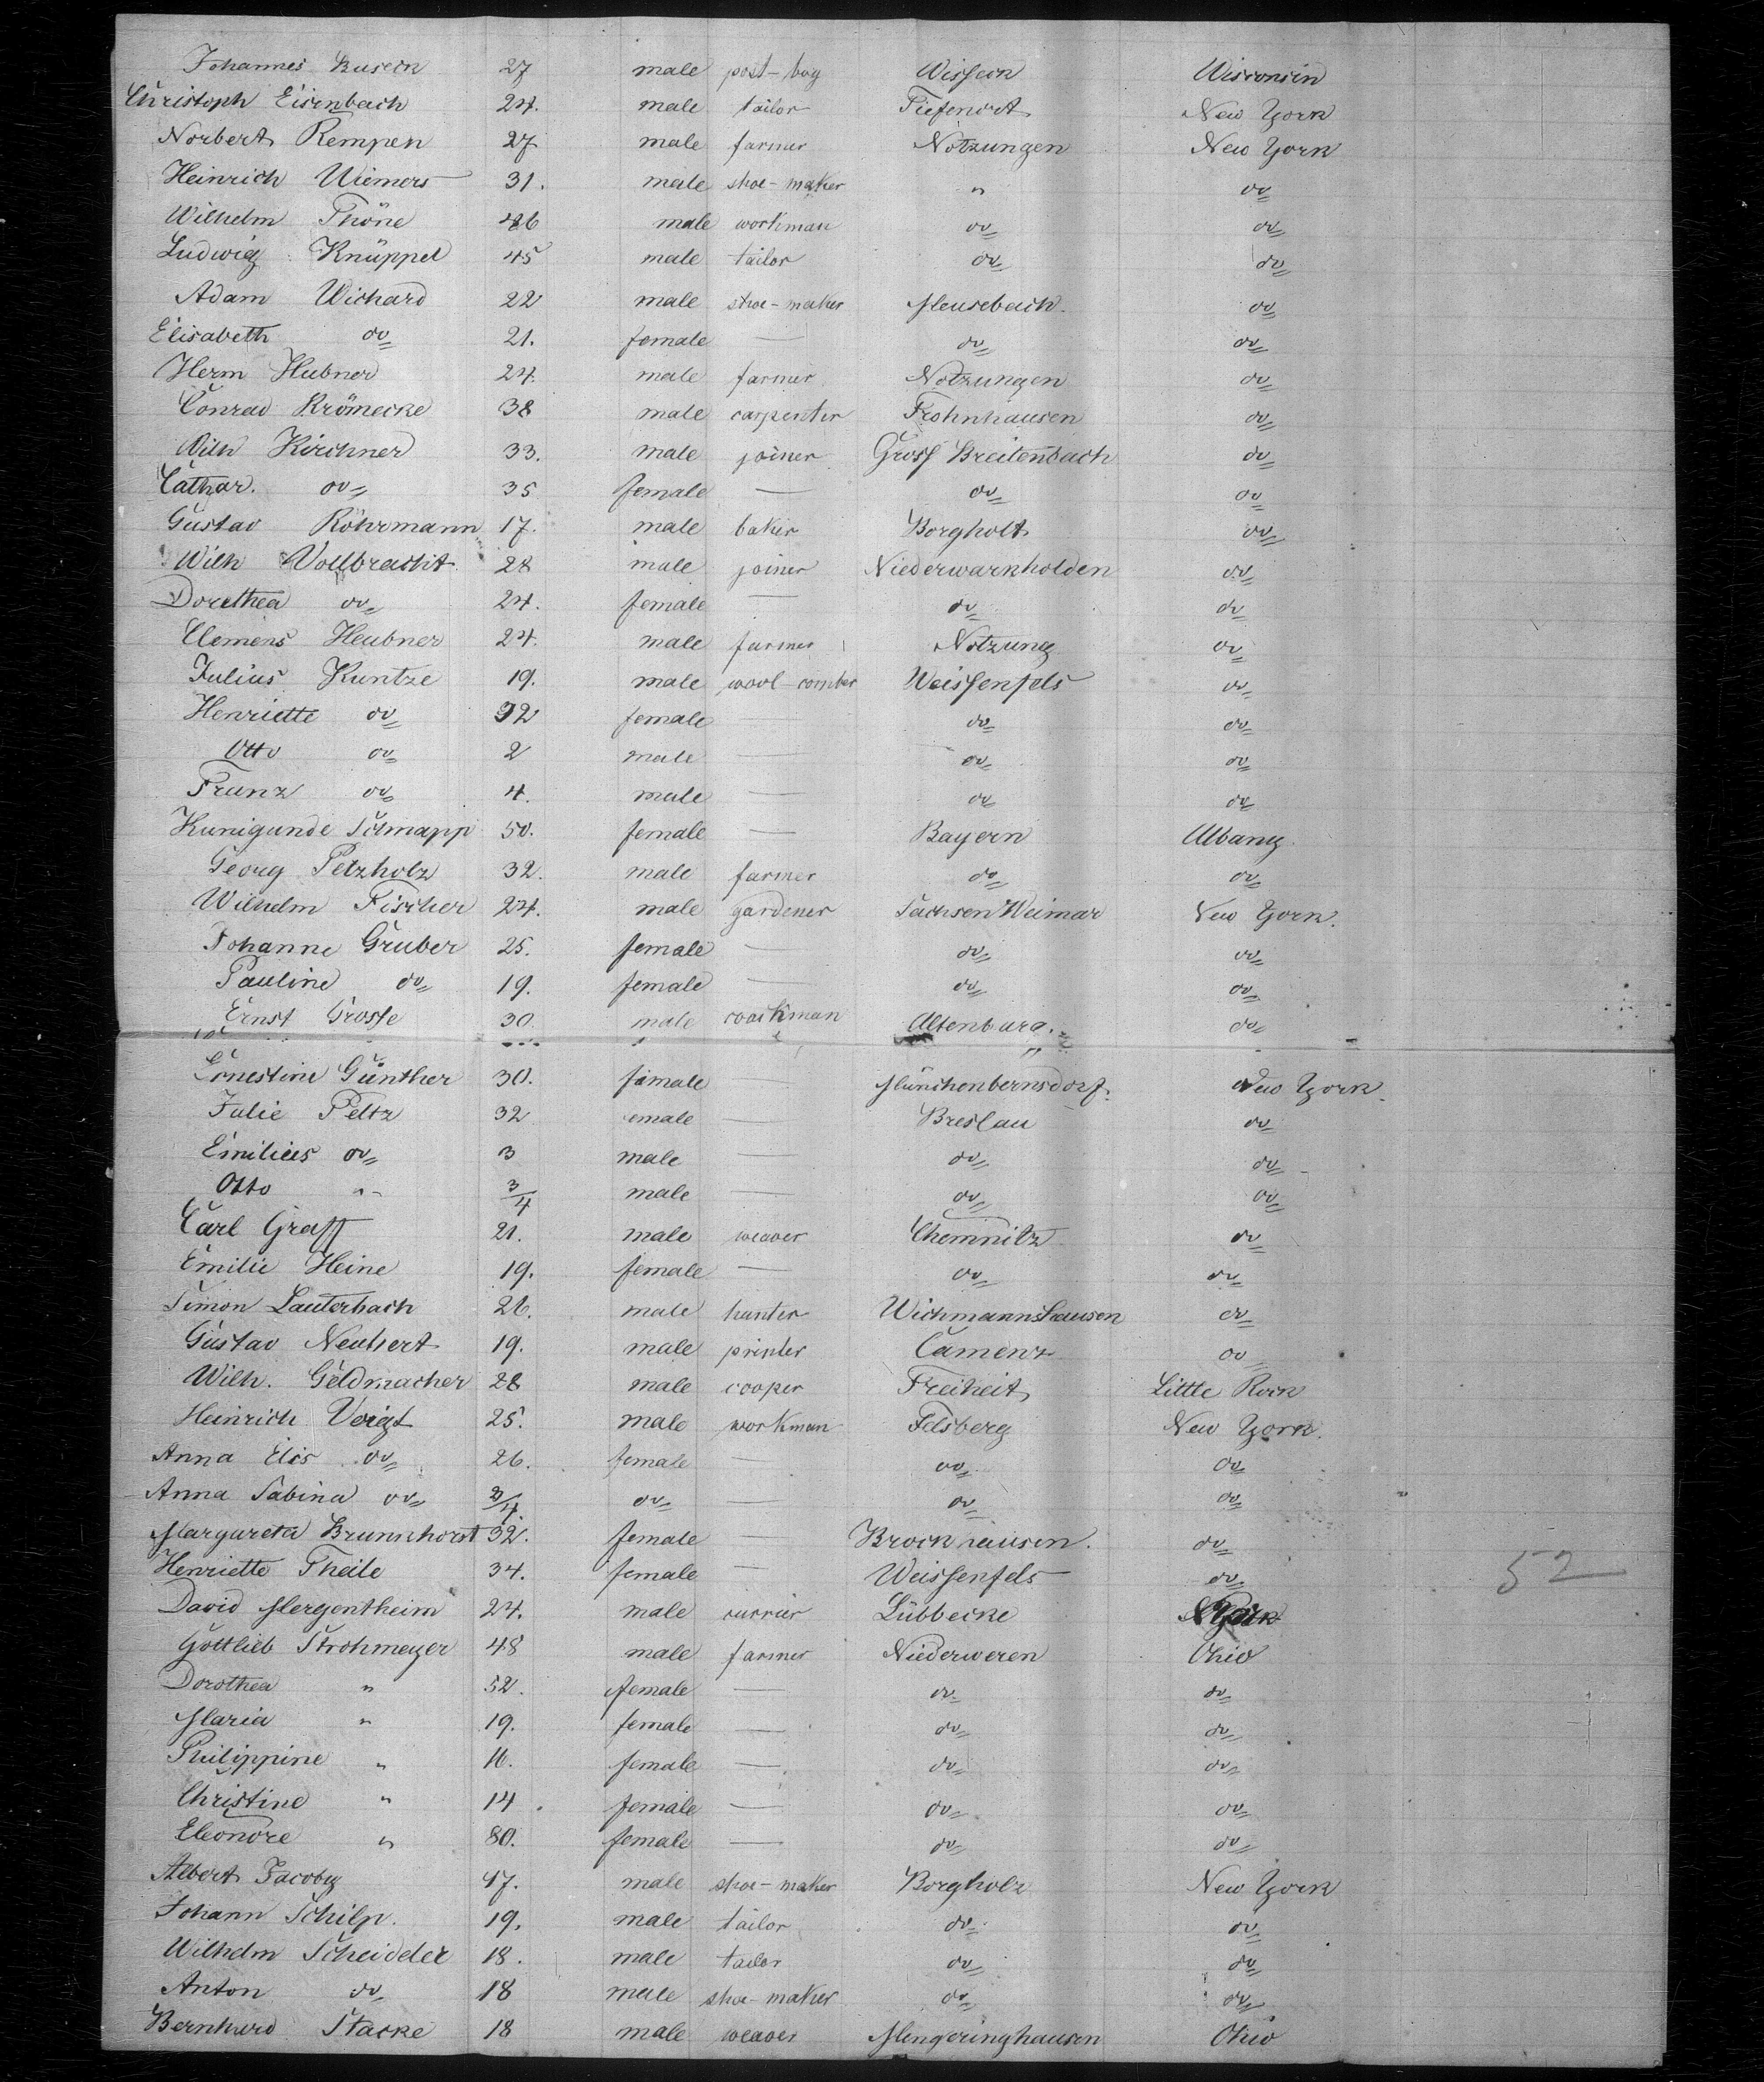 Johannes Busech 27 male post-boy Wisseck Wisconsin
Christoph Eisenbach 24. male tailor Tiefenort New York
Norbert Kempen 27 male farmer Notzungen New York
Heinrich Wiemers 31. male shoe-maker " do
Wilhelm Thöne 46 male workman do do
Ludwig Knüppel 45 male tailor do do
Adam Wichard 22 male shoe-maker Meusebach. do
Elisabeth do 21. female — do do
Herm Hubner 24. male farmer Notzungen do
Conrad Krömecke 38 male carpenter Frohnhausen do
Wilh Kirchner 33. male joiner Gross Breitenbach do
Cathar. do 35 female — do do
Gustav Röhrmann 17. male baker Borgholt do
Wilh Vollbracht 28 male joiner Niederwarkholden do
Dorethea do 24. female — do do
Clemens Heubner 24. male farmer Notzung do
Julius Kuntze 19. male wool-comber Weissenfels do
Henriette do 32 female — do do
Otto do 2 male — do do
Franz do 4. male — do do
Kunigunde Schnapp 50. female — Bayern Albany
Georg Petzholz 32. male farmer do do
Wilhelm Fischer 24. male gardener Sachsen Weimar New York.
Johanne Gruber 25. female — do do
Pauline do 19. female — do do
Ernst Grosse 30. male coackman Altenburg. do
Ernestine Günther 30. female — Münchenbernsdorf. New York.
Julie Peltz 32 emale — Breslau do
Emilius do 3 male — do do
Otto " 3/4 male — do do
Carl Graff 21. male weaver Chemnitz do
Emilie Heine 19. female — do do
Simon Lauterbach 26. male hunter Wichmannshausen do
Gustav Neubert 19. male printer Camenz do
Wilh. Geldmacher 28 male cooper Freiheit Little Rock
Heinrich Voigt 25. male workman Felsberg New York.
Anna Elis do 26. female — do do
Anna Sabina do 3/4 do — do do
Margareta Brunnhorst 32. female — Brockhausen. do
Henriette Theile 34. female — Weissenfels do
David Mergentheim 24. male currier Lübbecke N York
Gottlieb Strohmeyer 48 male farmer Niederweren Ohio
Dorothea " 52. female — do do
Maria " 19. female — do do
Philippine " 16. female — do do
Christine " 14. female — do do
Eleonore " 80. female — do do
Albert Jacoby 17. male shoe-maker Borgholz New York
Johann Schilp. 19. male tailor do do
Wilhelm Scheideler 18. male tailor do do
Anton do 18 male shoe-maker do do
Bernhard Stacke 18 male weaver Mengeringhausen Ohio
52